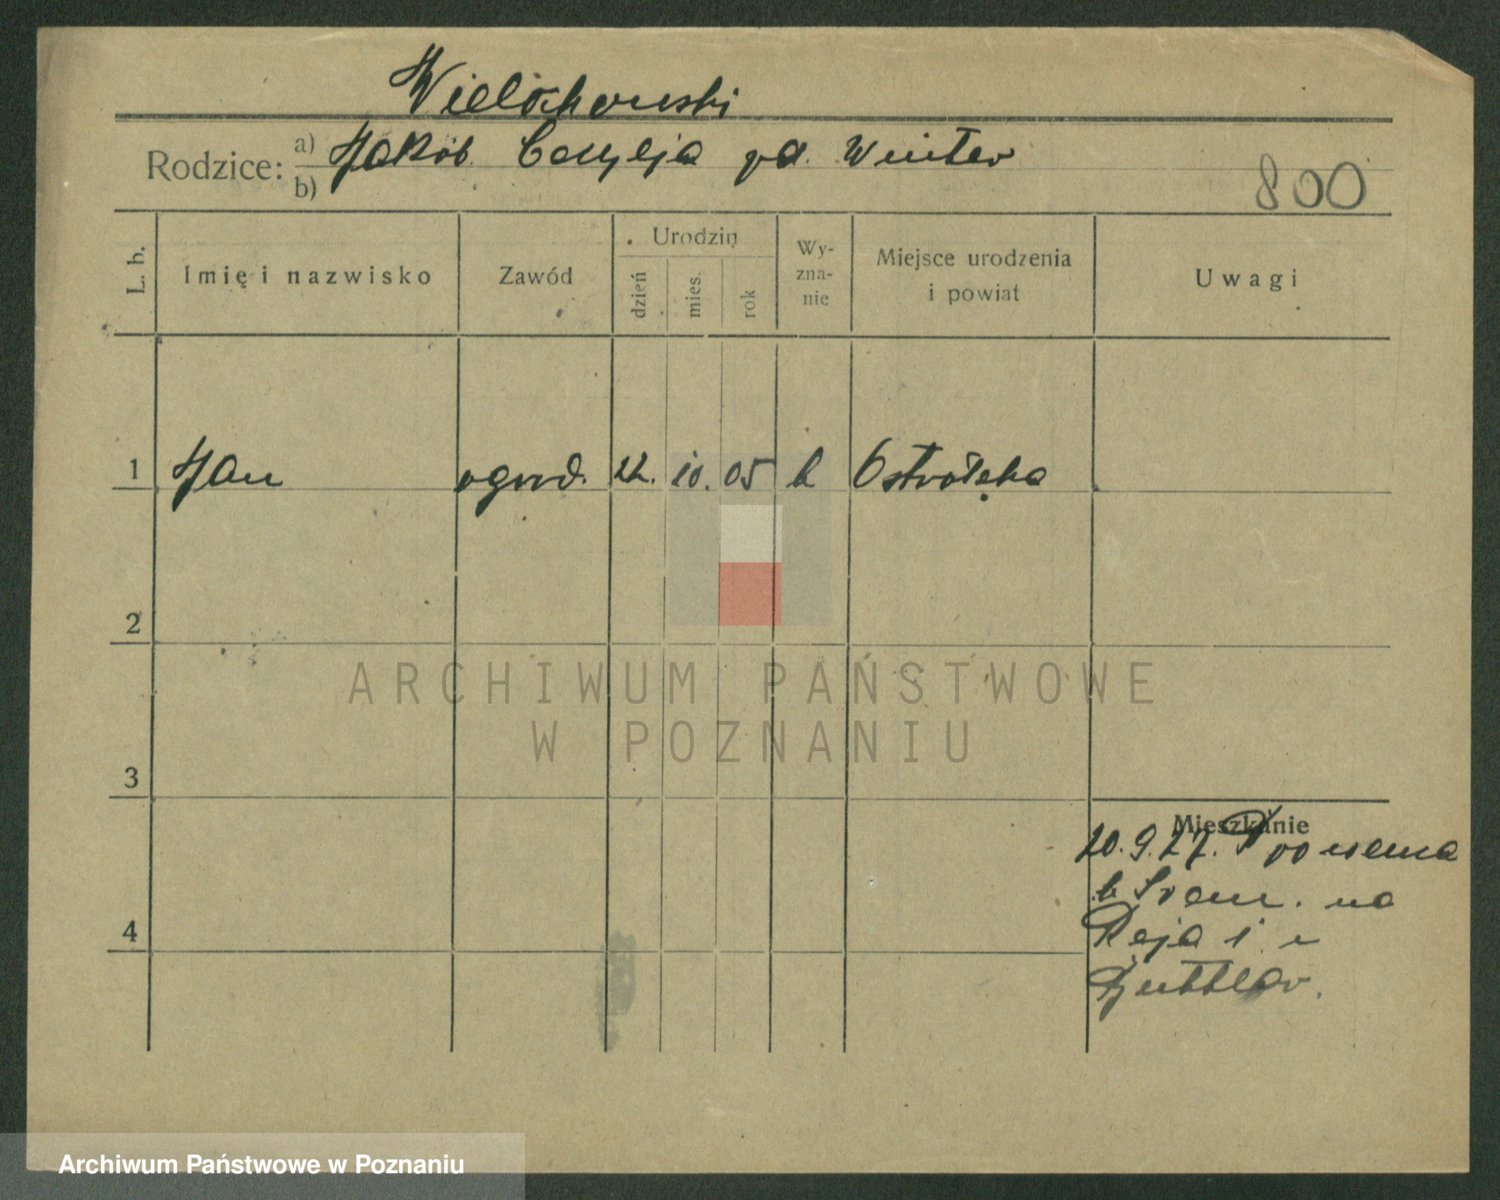 Wielochowski
Rodzice: a) Jakób Cecylja yd. Winter
b)
800
L. b.
Imię i nazwisko
Zawód
Urodzin
dzień
mies.
rok
Wy-
zna-
nie
Miejsce urodzenia
i powiat
Uwagi
1 Jan ogrod. 22. 10. 05 k Ostrołęka
2
3
4
Mieszkanie
20.9.27.
na
Reja 1
ARCHIWUM PAŃSTWOWE
W POZNANIU
Archiwum Państwowe w Poznaniu